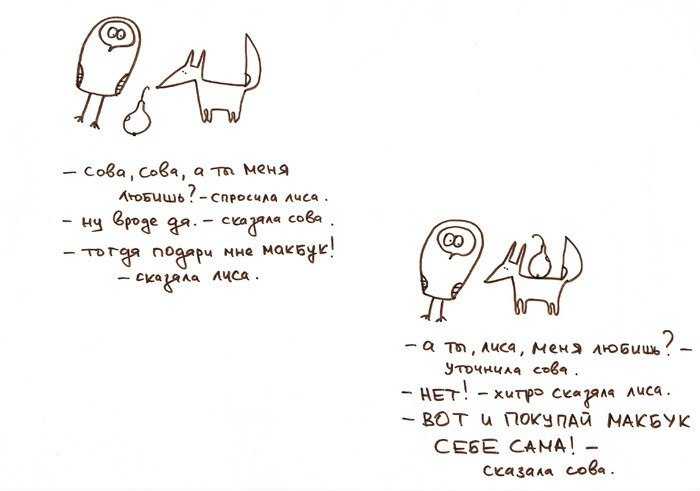 – сова, сова, а ты меня
любишь? – спросила лиса.
– ну вроде да. – сказала сова.
– тогда подари мне макбук!
– сказала лиса.
– а ты, лиса, меня любишь? –
уточнила сова.
– НЕТ! – хитро сказала лиса.
– ВОТ И ПОКУПАЙ МАКБУК
СЕБЕ САМА! –
сказала сова.